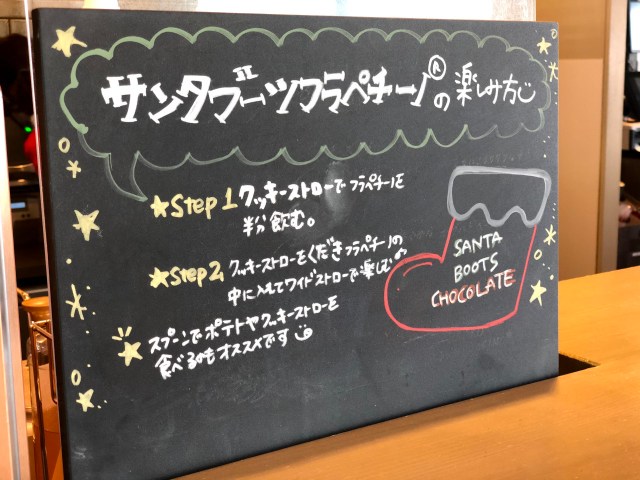 サンタブーツフラペチーノ®の楽しみ方
★Step 1 クッキーストローでフラペチーノを
半分飲む。
★Step2, クッキーストローをくだきフラペチーノの
中に入れてワイドストローで楽しむ♪
★スプーンでポテトやクッキーストローを
食べるのもオススメです
SANTA
BOOTS
CHOCOLATE